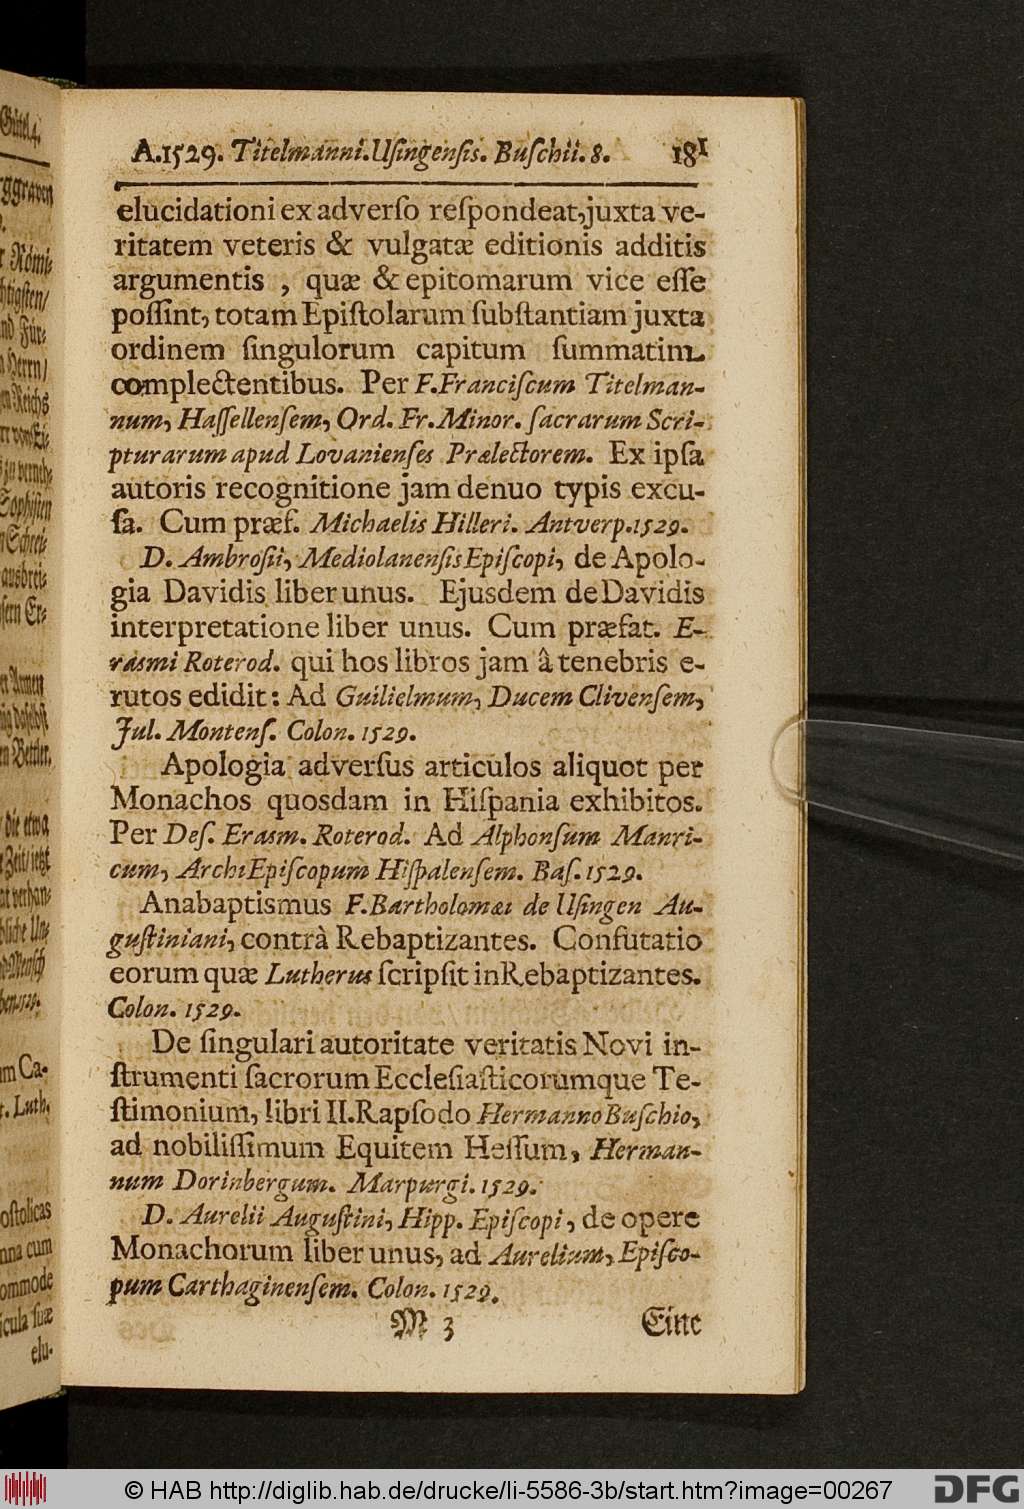 A.1529. Titelmanni. Uſingenſis. Buſchii. 8. 181
elucidationi ex adverſo reſpondeat, juxta ve-
ritatem veteris & vulgatæ editionis additis
argumentis , quæ & epitomarum vice eſſe
poſſint, totam Epiſtolarum ſubſtantiam juxta
ordinem ſingulorum capitum ſummatim
complectentibus. Per F. Franciſcum Titelman-
num, Haſſellenſem, Ord. Fr. Minor. ſacrarum Scri-
pturarum apud Lovanienſes Prælectorem. Ex ipſa
autoris recognitione jam denuo typis excu-
ſa. Cum præf. Michaelis Hilleri. Antverp. 1529.
D. Ambroſii, Mediolanenſis Epiſcopi, de Apolo-
gia Davidis liber unus. Ejusdem de Davidis
interpretatione liber unus. Cum præfat. E-
raſmi Roterod. qui hos libros jam â tenebris e-
rutos edidit: Ad Guilielmum, Ducem Clivenſem,
Jul. Montenſ. Colon. 1529.
Apologia adverſus articulos aliquot per
Monachos quosdam in Hiſpania exhibitos.
Per Deſ. Eraſm. Roterod. Ad Alphonſum Manri-
cum, ArchiEpiſcopum Hiſpalenſem. Baſ. 1529.
Anabaptismus F. Bartholomæi de Uſingen Au-
guſtiniani, contrà Rebaptizantes. Confutatio
eorum quæ Lutherus ſcripſit in Rebaptizantes.
Colon. 1529.
De ſingulari autoritate veritatis Novi in-
ſtrumenti ſacrorum Eccleſiaſticorumque Te-
ſtimonium, libri II. Rapſodo Hermanno Buſchio,
ad nobiliſſimum Equitem Heſſum, Herman-
num Dorinbergum. Marpurgi. 1529.
D. Aurelii Auguſtini, Hipp. Epiſcopi, de opere
Monachorum liber unus, ad Aurelium, Epiſco-
pum Carthaginenſem. Colon. 1529.
M 3 Eine
© HAB http://diglib.hab.de/drucke/li-5586-3b/start.htm?image=00267
DFG